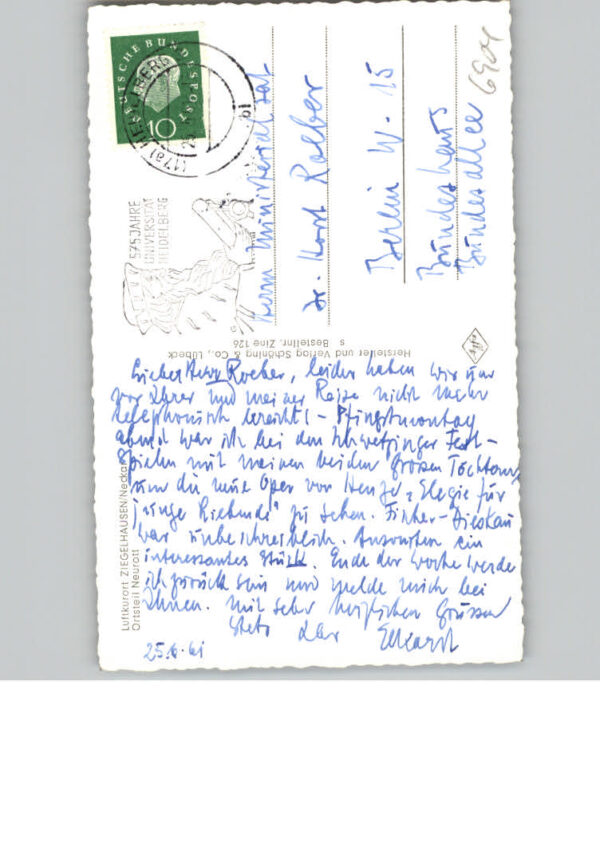 DEUTSCHE BUNDESPOST
10
(17a) HEIDELBERG
575 JAHRE
UNIVERSITÄT
HEIDELBERG
6901
Herrn Ministerialrat
Dr. Horst Roeber
Berlin W. 15
Bundeshaus
Bundesallee
Hersteller und Verlag Schöning & Co., Lübeck
s Bestellnr. Zine 126
Luftkurort ZIEGELHAUSEN/Neckar
Ortsteil Neurott
Lieber Herr Roeber, leider haben wir uns
vor Ihrer und meiner Reise nicht mehr
telephonisch erreicht – Pfingstmontag
abend war ich bei den Schwetzinger Fest-
spielen mit meinen beiden großen Töchtern,
um die neue Oper von Henze „Elegie für
junge Liebende" zu sehen. Fischer-Dieskau
war unbeschreiblich. Ansonsten ein
interessantes Stück. Ende der Woche werde
ich zurück sein und melde mich bei
Ihnen. Mit sehr herzlichen Grüssen
Stets Ihr
25.6.61